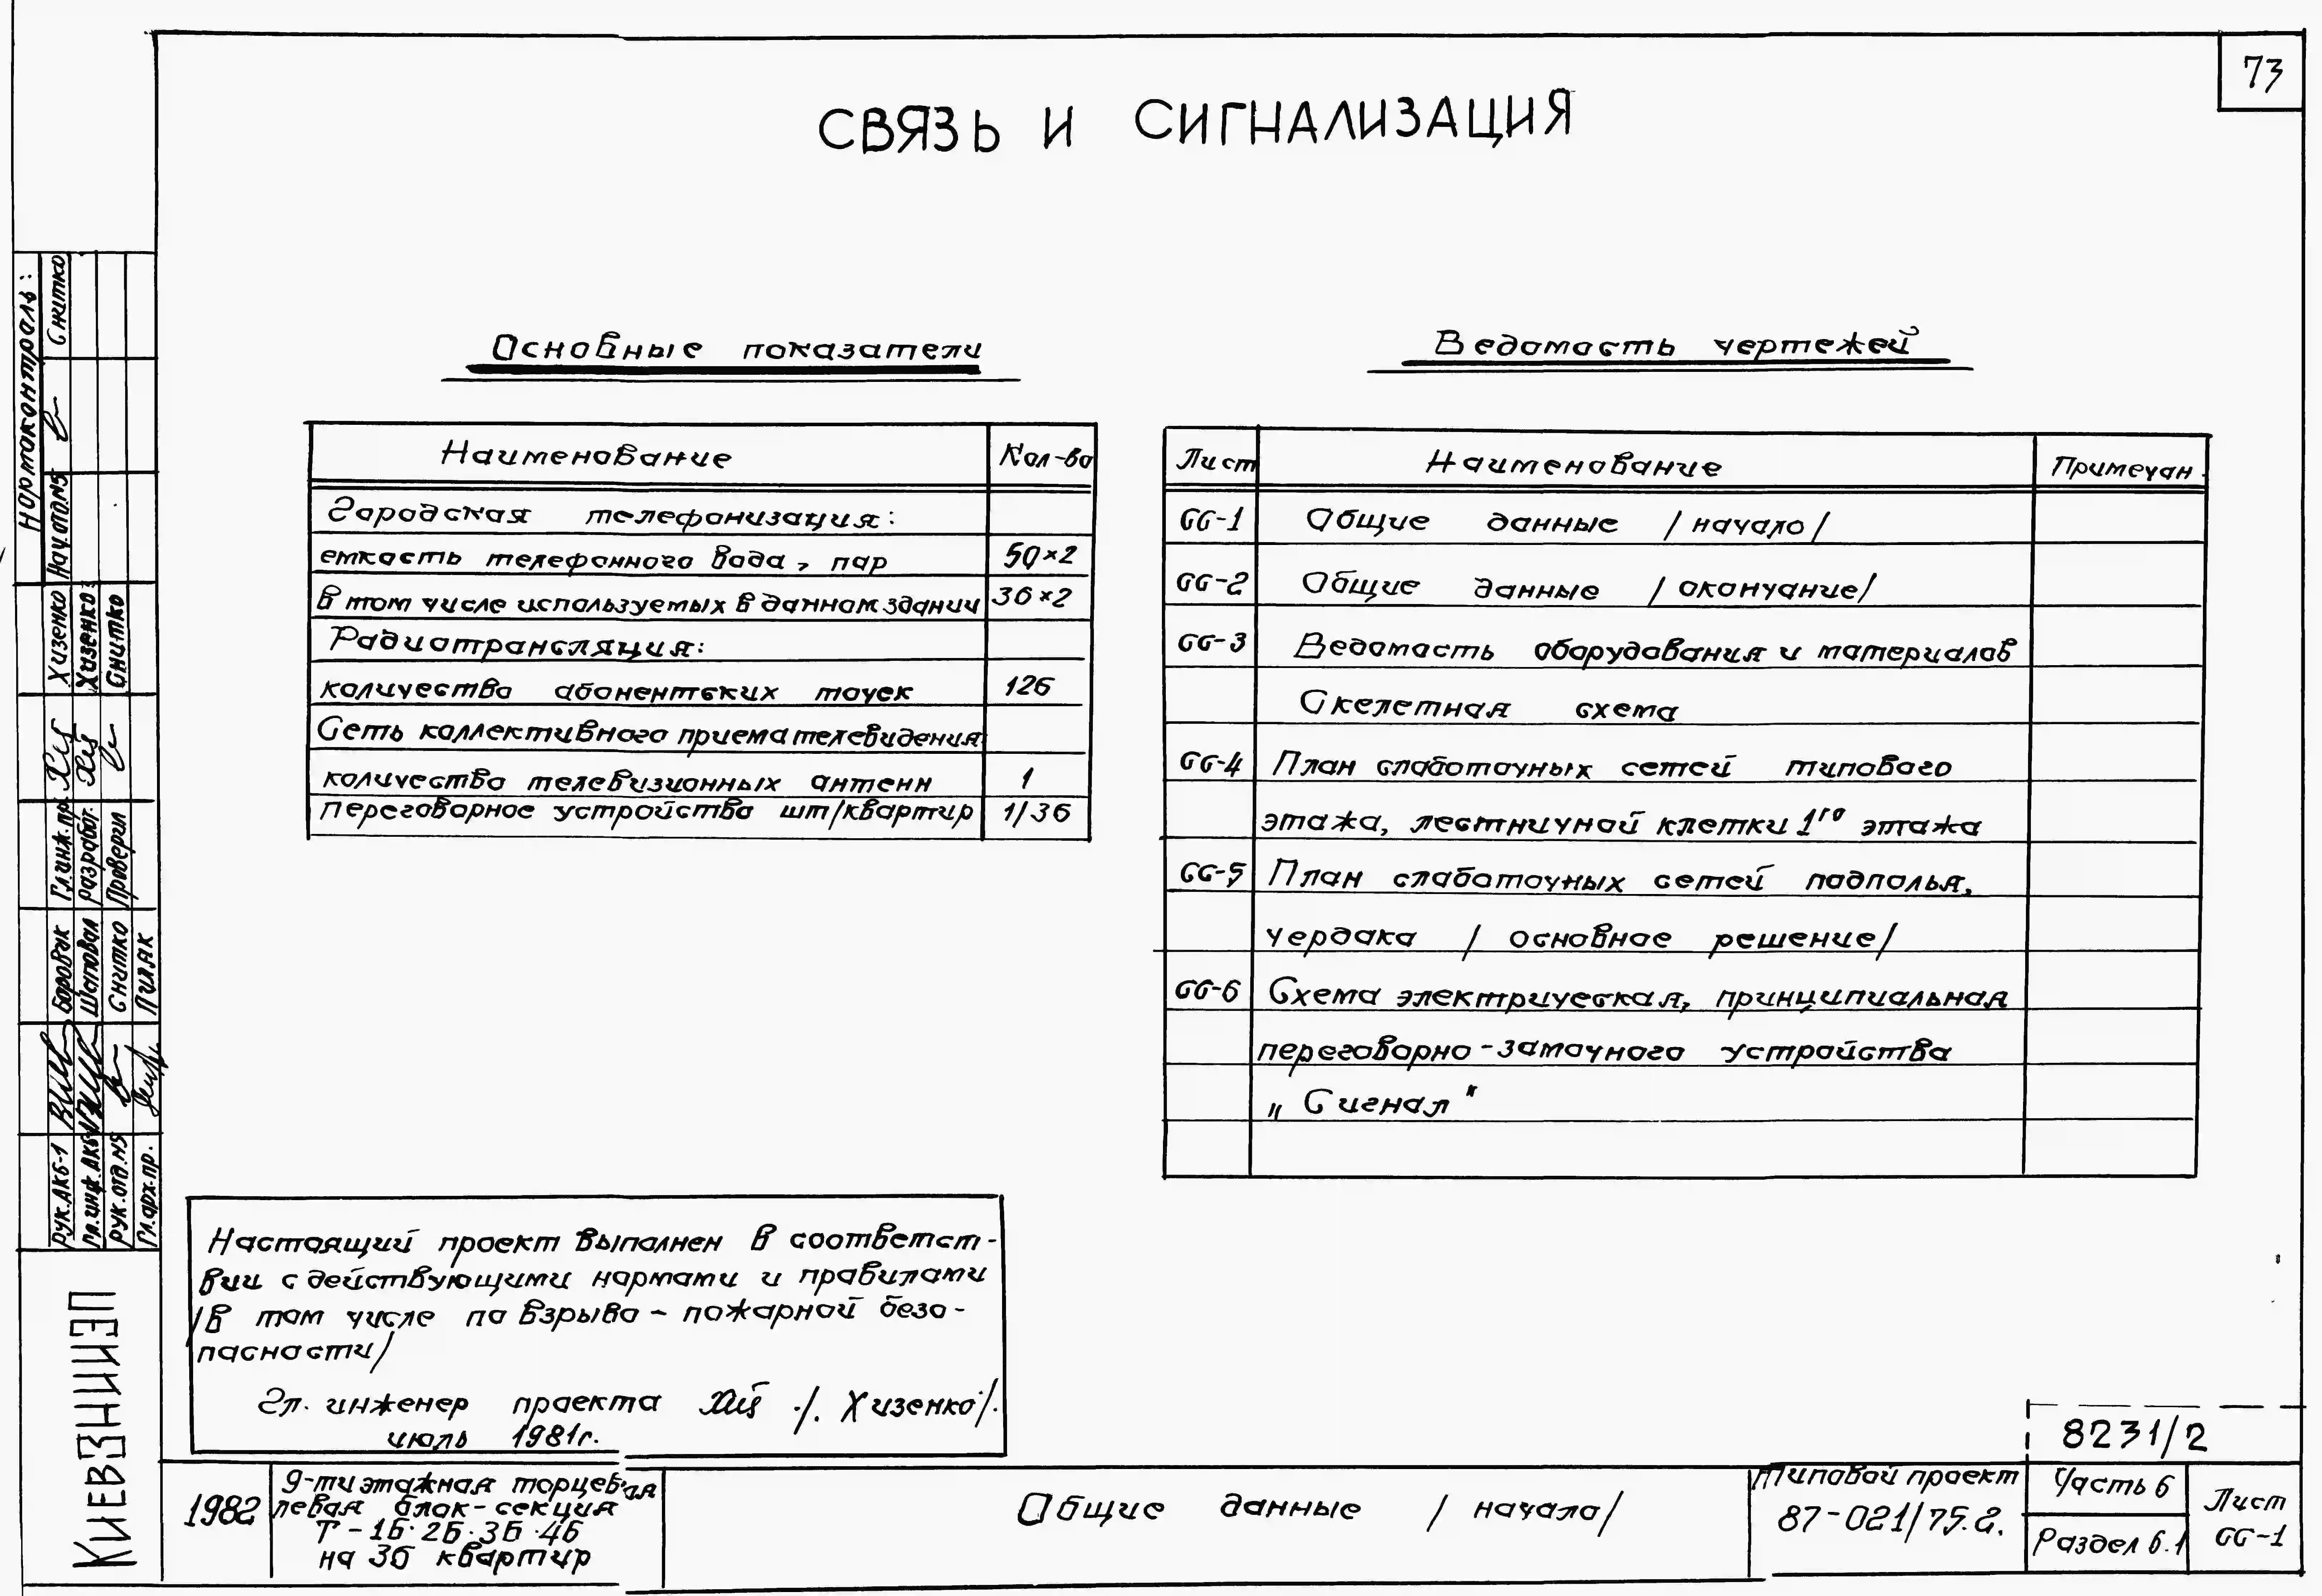 73
СВЯЗЬ И СИГНАЛИЗАЦИЯ
Основные показатели
Наименование Кол-во
Городская телефонизация:
емкость телефонного ввода, пар 50×2
в том числе используемых в данном здании 36×2
Радиотрансляция:
количество абонентских точек 126
Сеть коллективного приема телевидения:
количество телевизионных антенн 1
переговорное устройство шт/квартир 1/36
Ведомость чертежей
Лист Наименование Примечан.
СС-1 Общие данные /начало/
СС-2 Общие данные /окончание/
СС-3 Ведомость оборудования и материалов
Скелетная схема
СС-4 План слаботочных сетей типового
этажа, лестничной клетки 1го этажа
СС-5 План слаботочных сетей подполья,
чердака /основное решение/
СС-6 Схема электрическая, принципиальная
переговорно-замочного устройства
„Сигнал"
Настоящий проект выполнен в соответст-
вии с действующими нормами и правилами
/в том числе по взрыво-пожарной безо-
пасности/
Гл. инженер проекта /. Хизенко/.
июль 1981г.
Нормоконтроль:
Нач.отд.№5 Снитко
Гл.инж.пр. Хизенко
Разработ. Хизенко
Проверил Снитко
Рук.АКБ-1 Боровик
Гл.инж.АКБ-1 Шаповал
Рук.отд.№5 Снитко
Гл.арх.пр. Пилак
КиевЗНИИЭП
1982
9-ти этажная торцевая
левая блок-секция
Т-1Б·2Б·3Б·4Б
на 36 квартир
Общие данные /начало/
8231/2
Типовой проект
87-021/75.2.
Часть 6
Раздел 6.1
Лист
СС-1